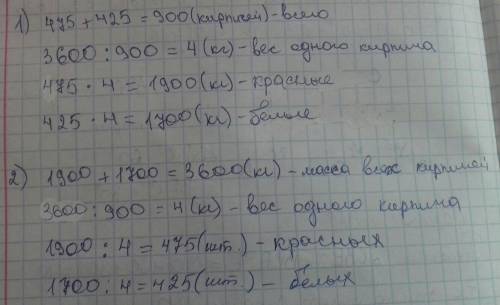 1) 475 + 425 = 900 (кирпичей) - всего
3600 : 900 = 4 (кг) - вес одного кирпича
475 · 4 = 1900 (кг) - красные
425 · 4 = 1700 (кг) - белые
2) 1900 + 1700 = 3600 (кг) - масса всех кирпичей
3600 : 900 = 4 (кг) - вес одного кирпича
1900 : 4 = 475 (шт.) - красных
1700 : 4 = 425 (шт.) - белых